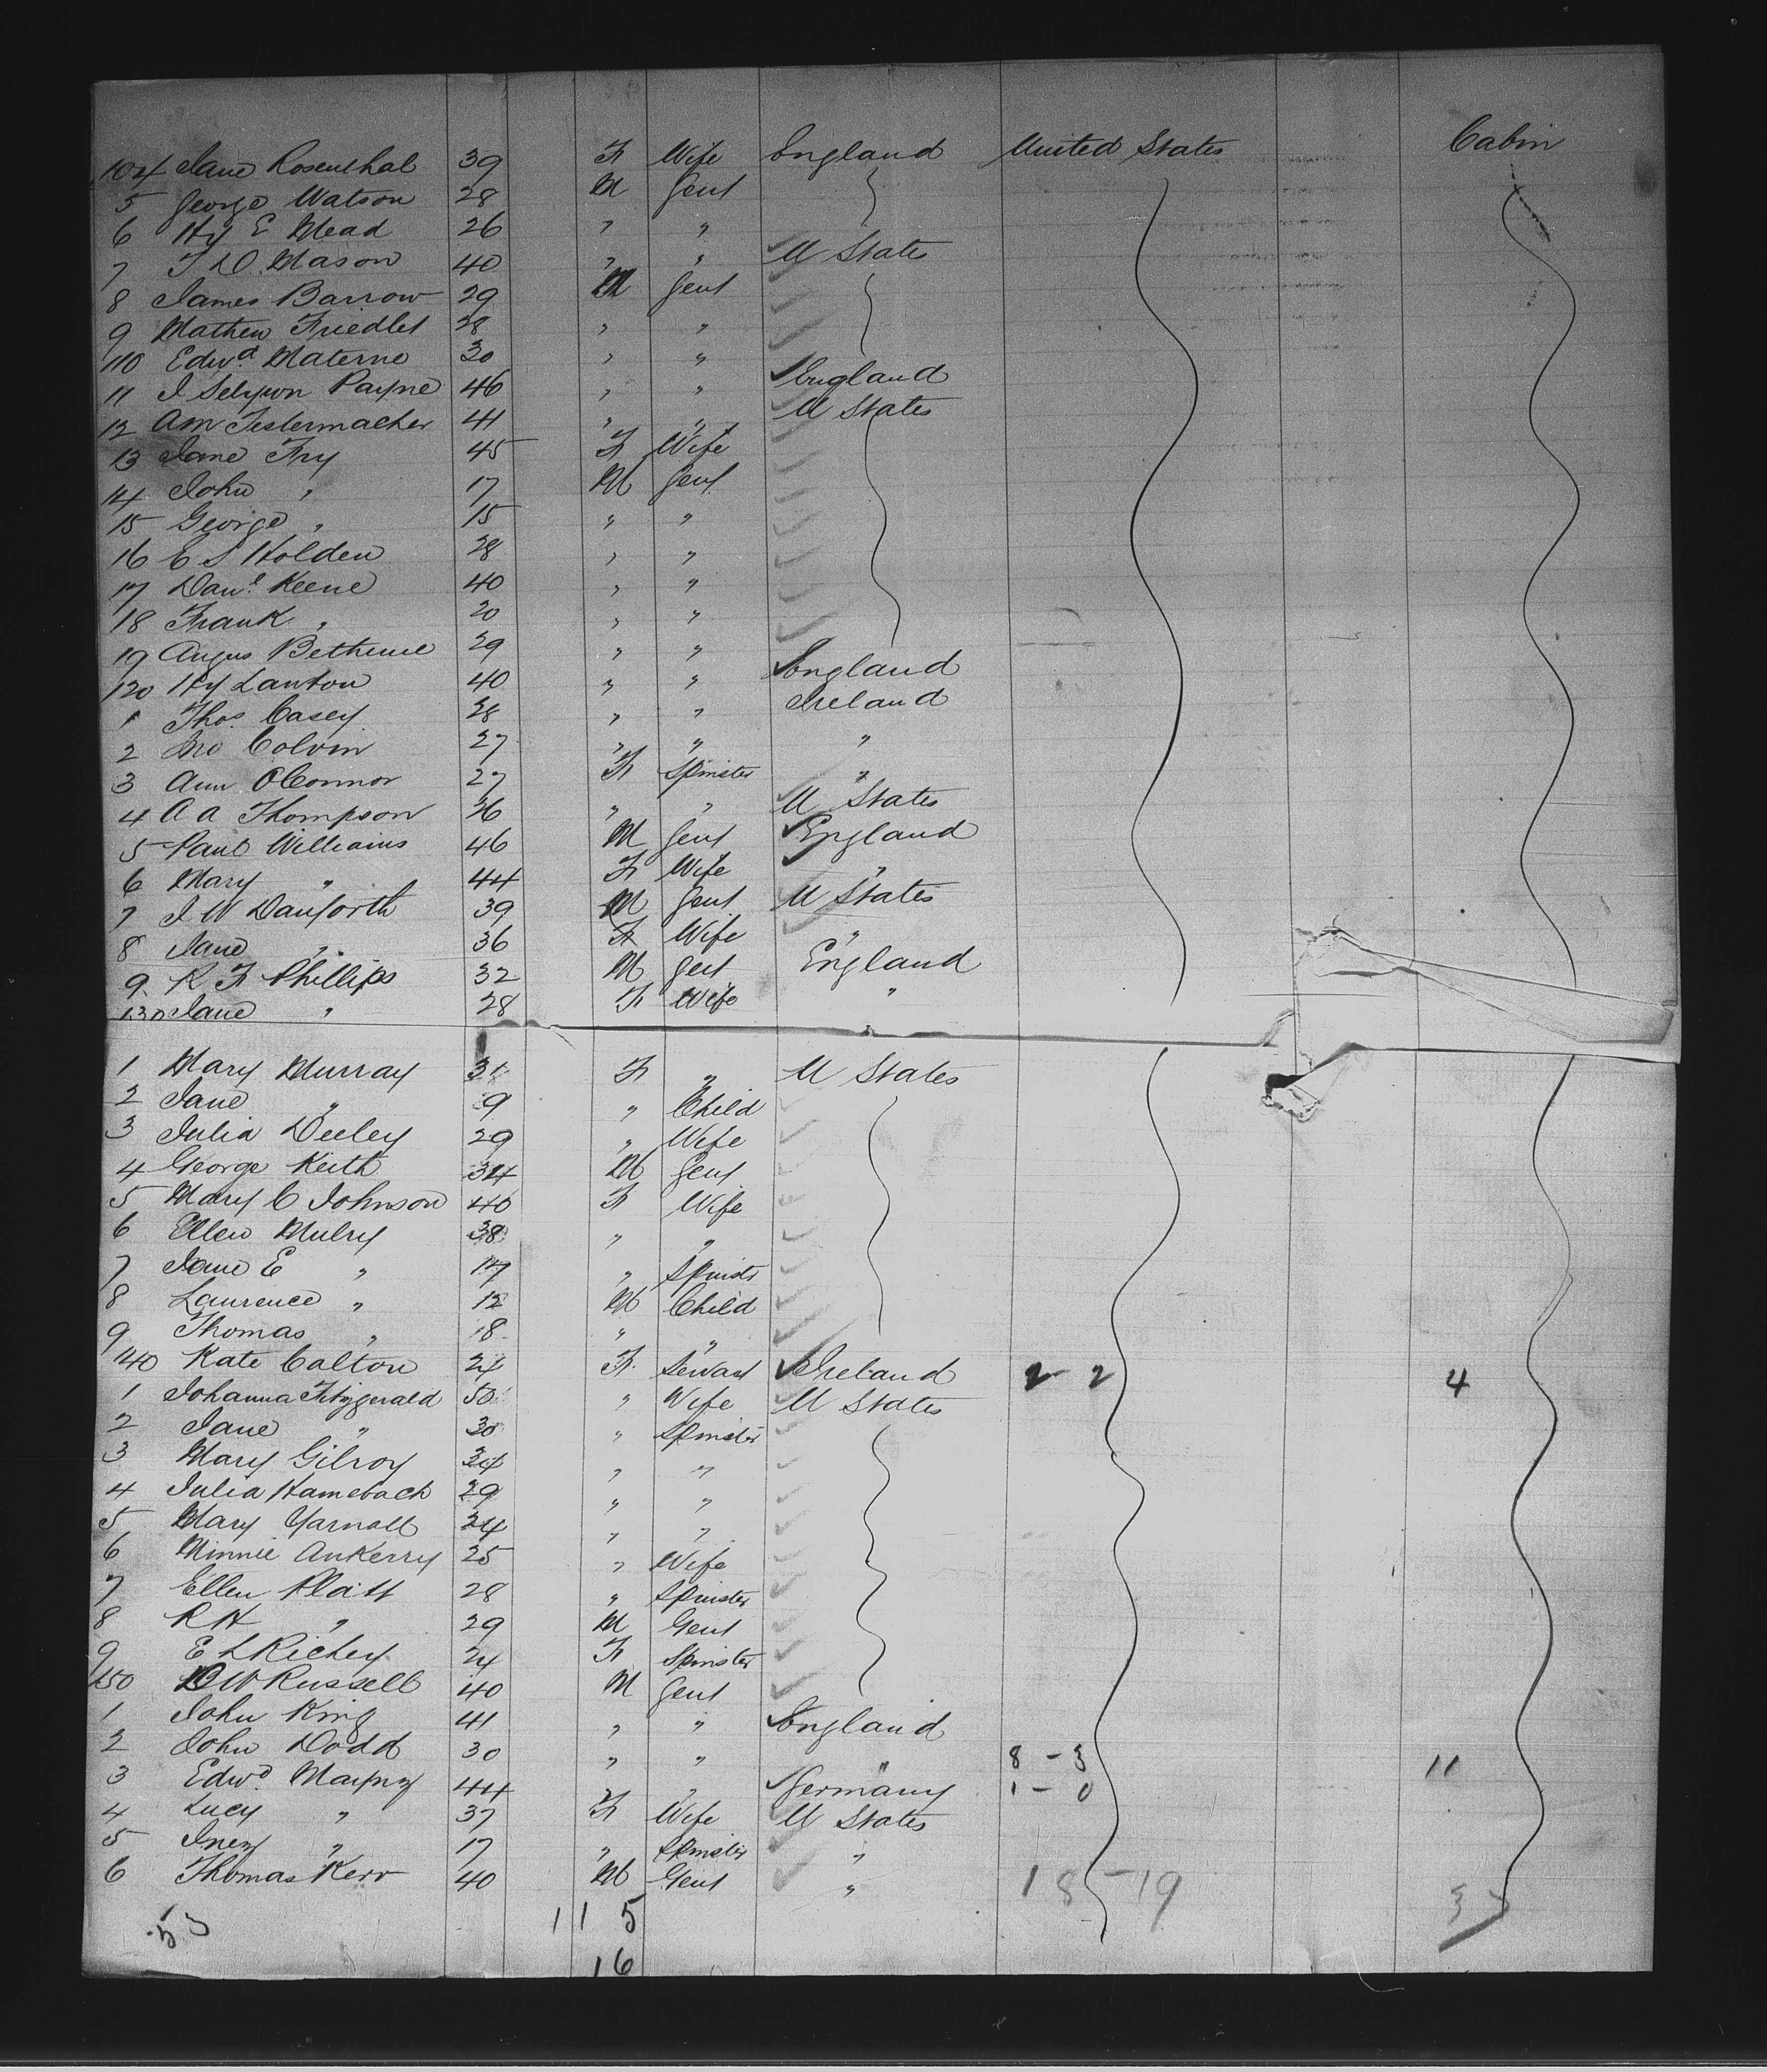 104 Jane Rosenthal 39 F Wife England United States Cabin
5 George Watson 28 M Gent
6 Hy E Mead 26 " "
7 T D. Mason 40 " " U States
8 James Barrow 29 M Gent
9 Mathew Friedlet 28 " "
110 Edwd Materne 30 " "
11 J Selywn Payne 46 " " England
12 Am Festermacher 41 " " U States
13 Jane Fry 45 F Wife
14 John " 17 M Gent
15 George " 15 " "
16 E S Holden 28 " "
17 Danl Keene 40 " "
18 Frank " 20 " "
19 Angus Bethune 29 " " England
120 Hy Lanton 40 " " Ireland
1 Thos Casey 28 " "
2 Jno Colvin 27 " " "
3 Ann O'Connor 27 F Spinster "
4 A A Thompson 26 " " U States
5 Paul Williams 46 M Gent England
6 Mary " 44 F Wife "
7 J W Danforth 39 M Gent U States
8 Jane " 36 F Wife "
9 K F Phillips 32 M Gent England
130 Jane " 28 F Wife "
1 Mary Murray 31 F " U States
2 Jane " 9 " Child
3 Julia Deeley 29 " Wife
4 George Keith 34 M Gent
5 Mary C Johnson 40 F Wife
6 Ellen Mulry 38 " "
7 Jane E " 17 " Spinstr
8 Laurence " 12 M Child
9 Thomas " 8 " "
140 Kate Colton 24 F Servant Ireland 2 2 4
1 Johanna Fitzgerald 50 " Wife U States
2 Jane " 30 " Spinster
3 Mary Gilroy 34 " "
4 Julia Hamebach 29 " "
5 Mary Yarnall 24 " "
6 Minnie Ankerry 25 " Wife
7 Ellen Platt 28 " Spinster
8 R H " 29 M Gent
9 E L Richey 24 F Spinster
150 W Russell 40 M Gent
1 John King 41 " " England
2 John Dodd 30 " " " 8 - 3 11
3 Edwd 44 " " Germany 1 - 0
4 Lucy " 37 F Wife U States
5 Inez " 17 " Spinster "
6 Thomas Kerr 40 M Gent " 18 - 19
53 115
16